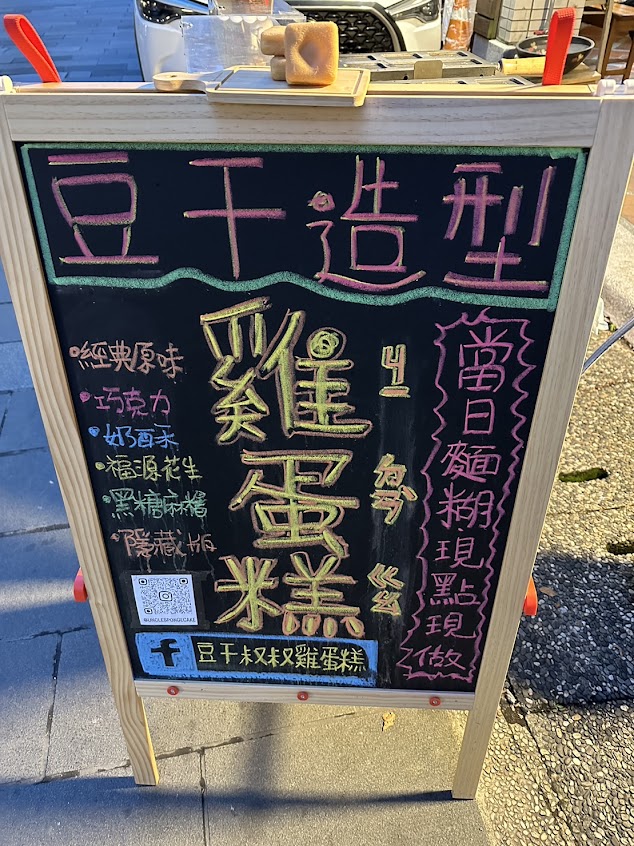 豆干造型
當日麵糊現點現做
ㄐㄧ
ㄉㄢˋ
ㄍㄠ
雞蛋糕
•經典原味
•巧克力
•奶酥
•福源花生
•黑糖麻糬
•隱藏版
@UNCLESPONGECAKE
f 豆干叔叔雞蛋糕